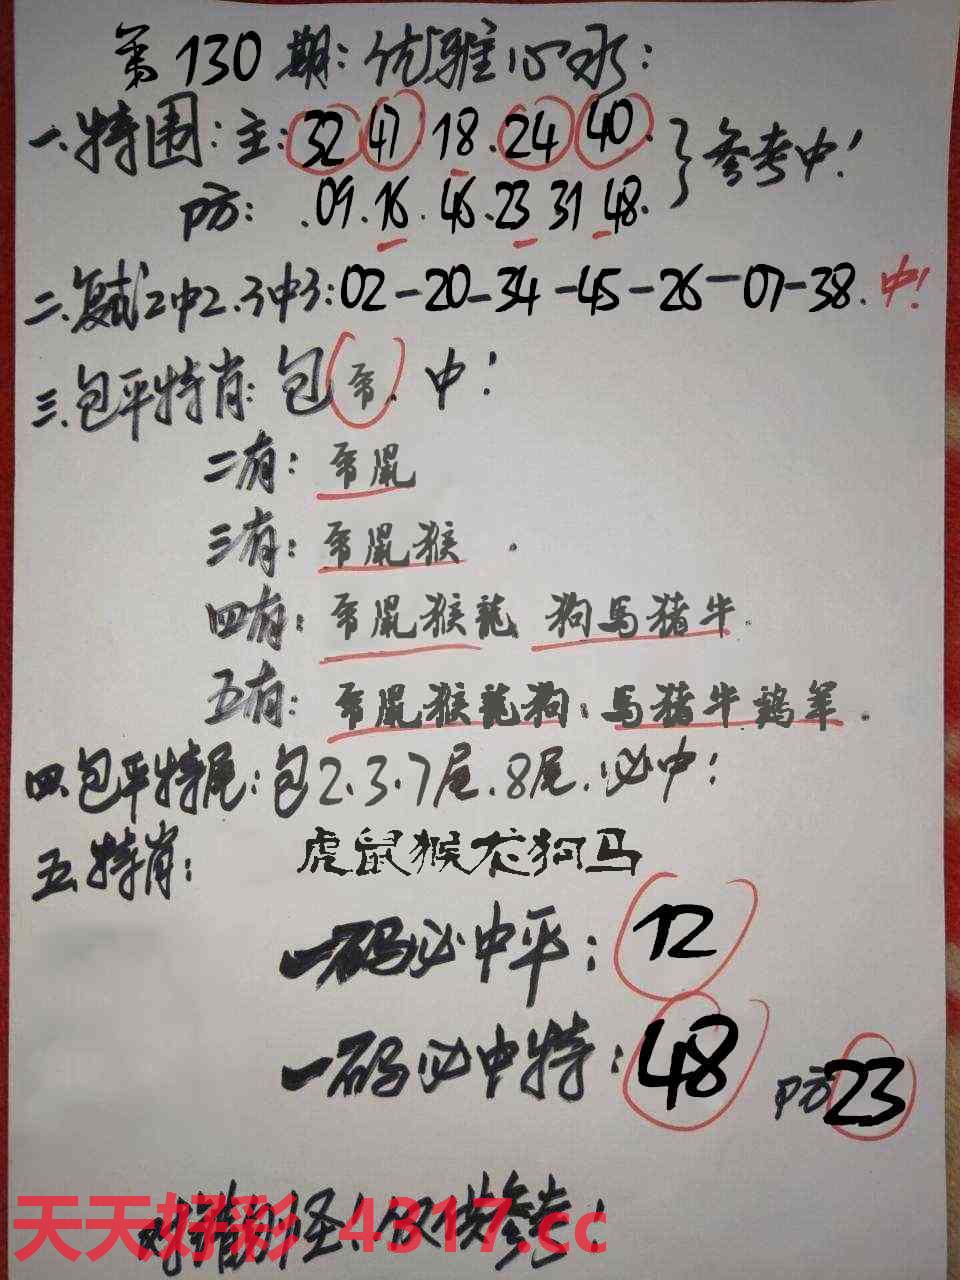 第130期:优雅心水:
一.特围:主:32 47.18.24 40.
防:.09.16.46.23 31 48.
参考中!
二.复试2中2.3中3:02-20-34-45-26-07-38.中!
三.包平特肖:包帝.中!
二有:帝鼠
三有:帝鼠猴.
四有:帝鼠猴龍 狗馬猪牛.
五有:帝鼠猴龍狗.馬猪牛鷄羊.
四.包平特尾:包2.3.7尾.8尾.必中!
五.特肖:虎鼠猴龙狗马
一码必中平:12
一码必中特:48 防23
对错别怪!仅供参考!
天天好彩 4317.cc